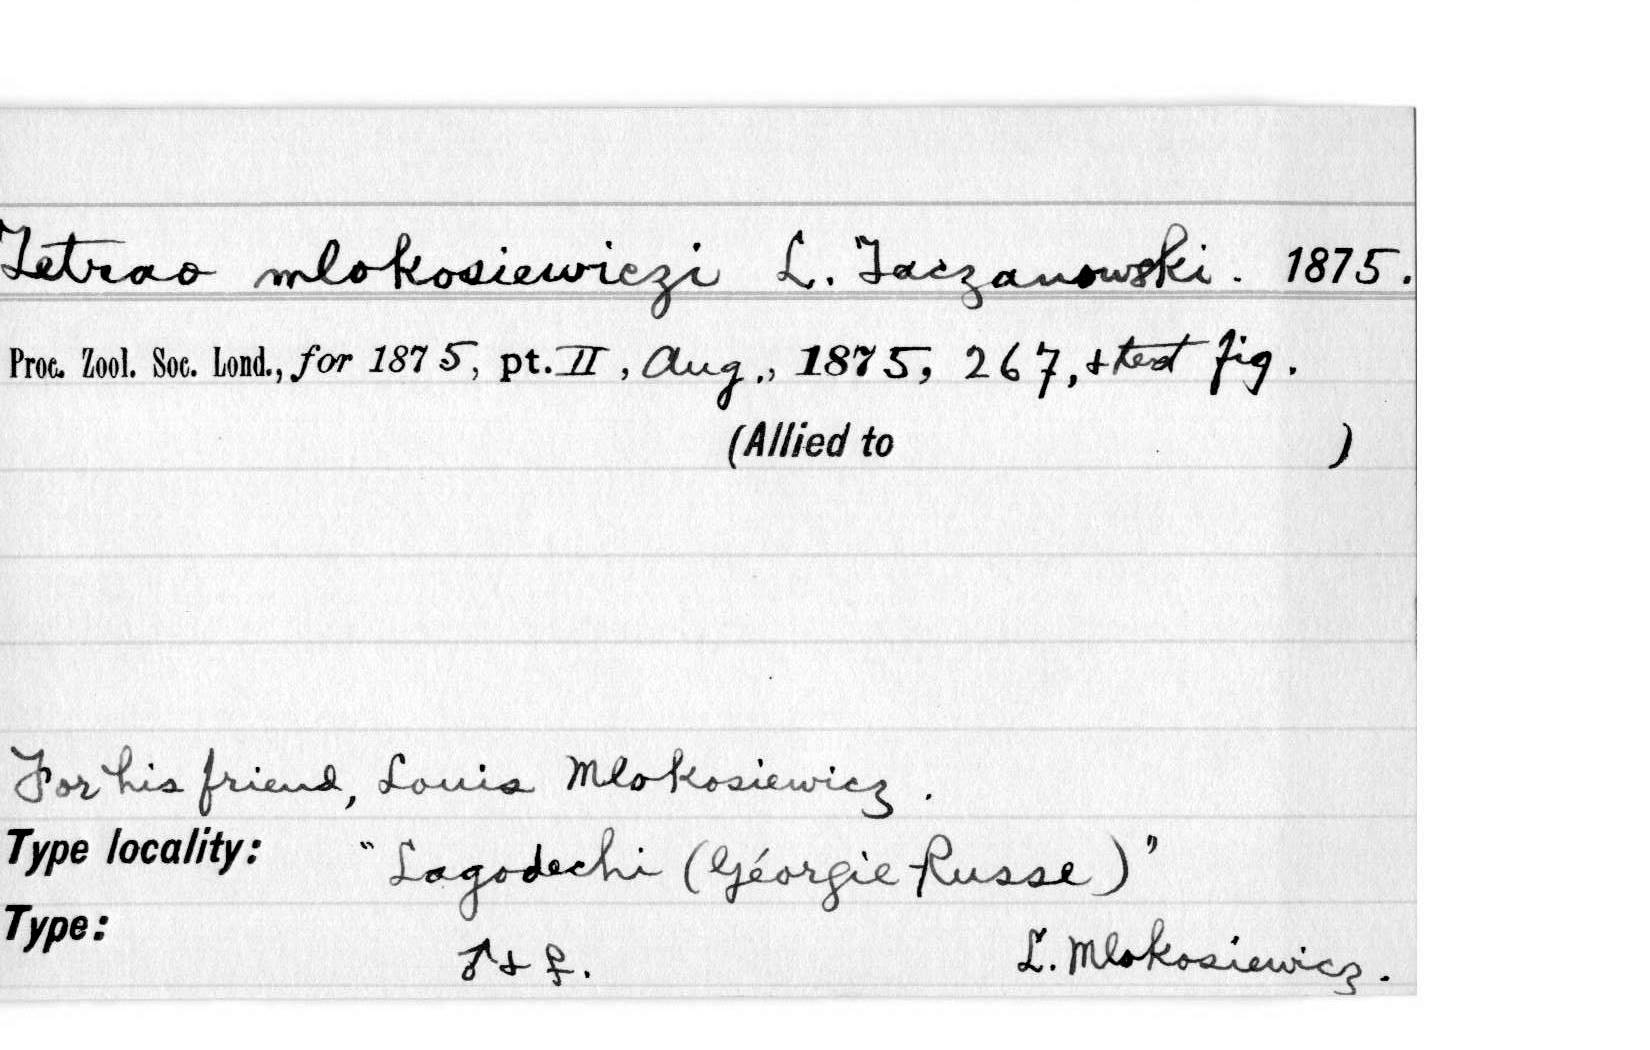 Tetrao mlokosiewiczi L. Taczanowski. 1875.
Proc. Zool. Soc. Lond., for 1875, pt. II, Aug., 1875, 267, + text fig.
(Allied to )
For his friend, Louis Mlokosiewicz.
Type locality: "Lagodechi (Géorgie Russe)"
Type: ♂ + ♀. L. Mlokosiewicz.